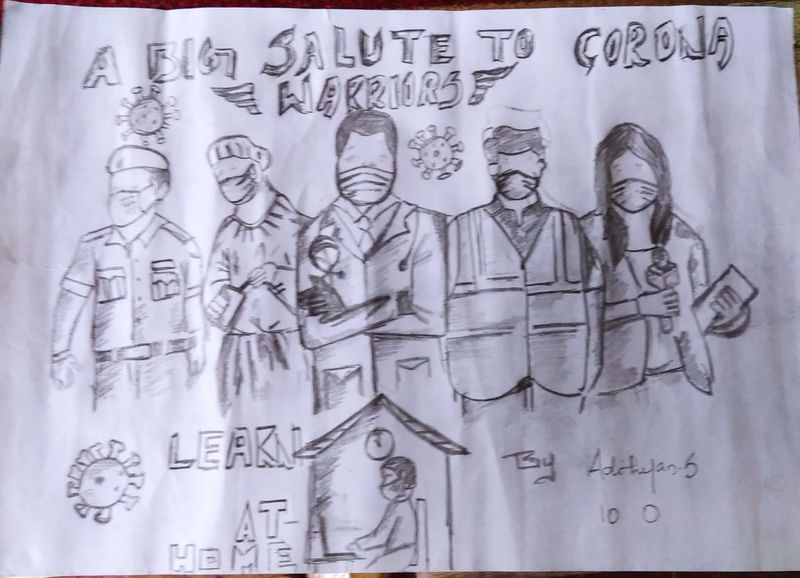 A BIG SALUTE TO CORONA
WARRIORS
LEARN
AT-
HOME
By
10 O